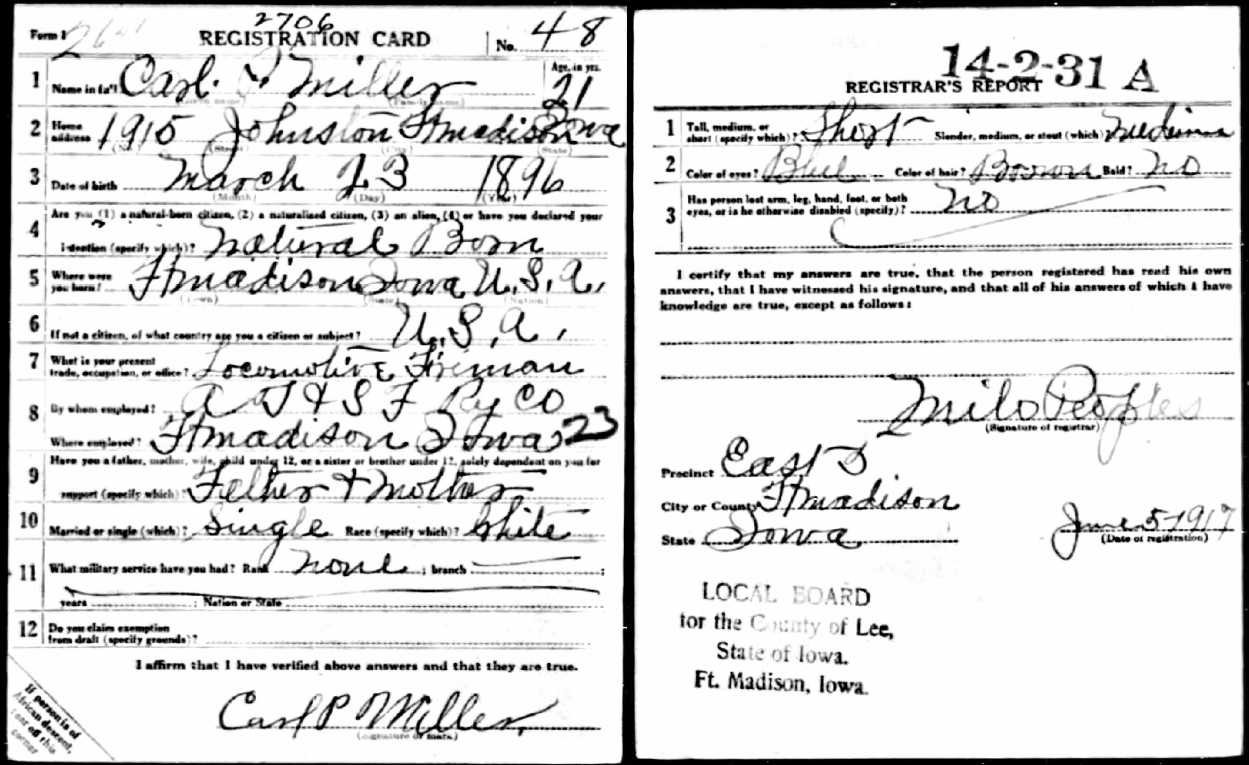 2706
Form 1 REGISTRATION CARD No. 48
1 Name in full Carl P Miller Age, in yrs. 21
(Given name) (Family name)
2 Home address 1915 Johnston Ft Madison Iowa
(Street) (City) (State)
3 Date of birth March 23 1896
(Month) (Day) (Year)
4 Are you (1) a natural-born citizen, (2) a naturalized citizen, (3) an alien, (4) or have you declared your
intention (specify which)? Natural Born
5 Where were you born? Ft Madison Iowa U.S.A.
(Town) (State) (Nation)
6 If not a citizen, of what country are you a citizen or subject? U.S.A.
7 What is your present trade, occupation, or office? Locomotive Fireman
8 By whom employed? A T & S F Ry Co
Where employed? Ft Madison Iowa 23
9 Have you a father, mother, wife, child under 12, or a sister or brother under 12, solely dependent on you for
support (specify which)? Father & Mother
10 Married or single (which)? Single Race (specify which)? White
11 What military service have you had? Rank None ; branch ;
years ; Nation or State
12 Do you claim exemption from draft (specify grounds)?
I affirm that I have verified above answers and that they are true.
Carl P Miller
(Signature or mark)
If person is of
African descent,
tear off this
corner
14-2-31 A
REGISTRAR'S REPORT
1 Tall, medium, or short (specify which)? Short Slender, medium, or stout (which)? Medium
2 Color of eyes? Blue Color of hair? Brown Bald? No
3 Has person lost arm, leg, hand, foot, or both eyes, or is he otherwise disabled (specify)? No
I certify that my answers are true, that the person registered has read his own
answers, that I have witnessed his signature, and that all of his answers of which I have
knowledge are true, except as follows:
Milo Peoples
(Signature of registrar)
Precinct East
City or County Ft Madison
State Iowa
June 5 - 1917
(Date of registration)
LOCAL BOARD
for the County of Lee,
State of Iowa.
Ft. Madison, Iowa.